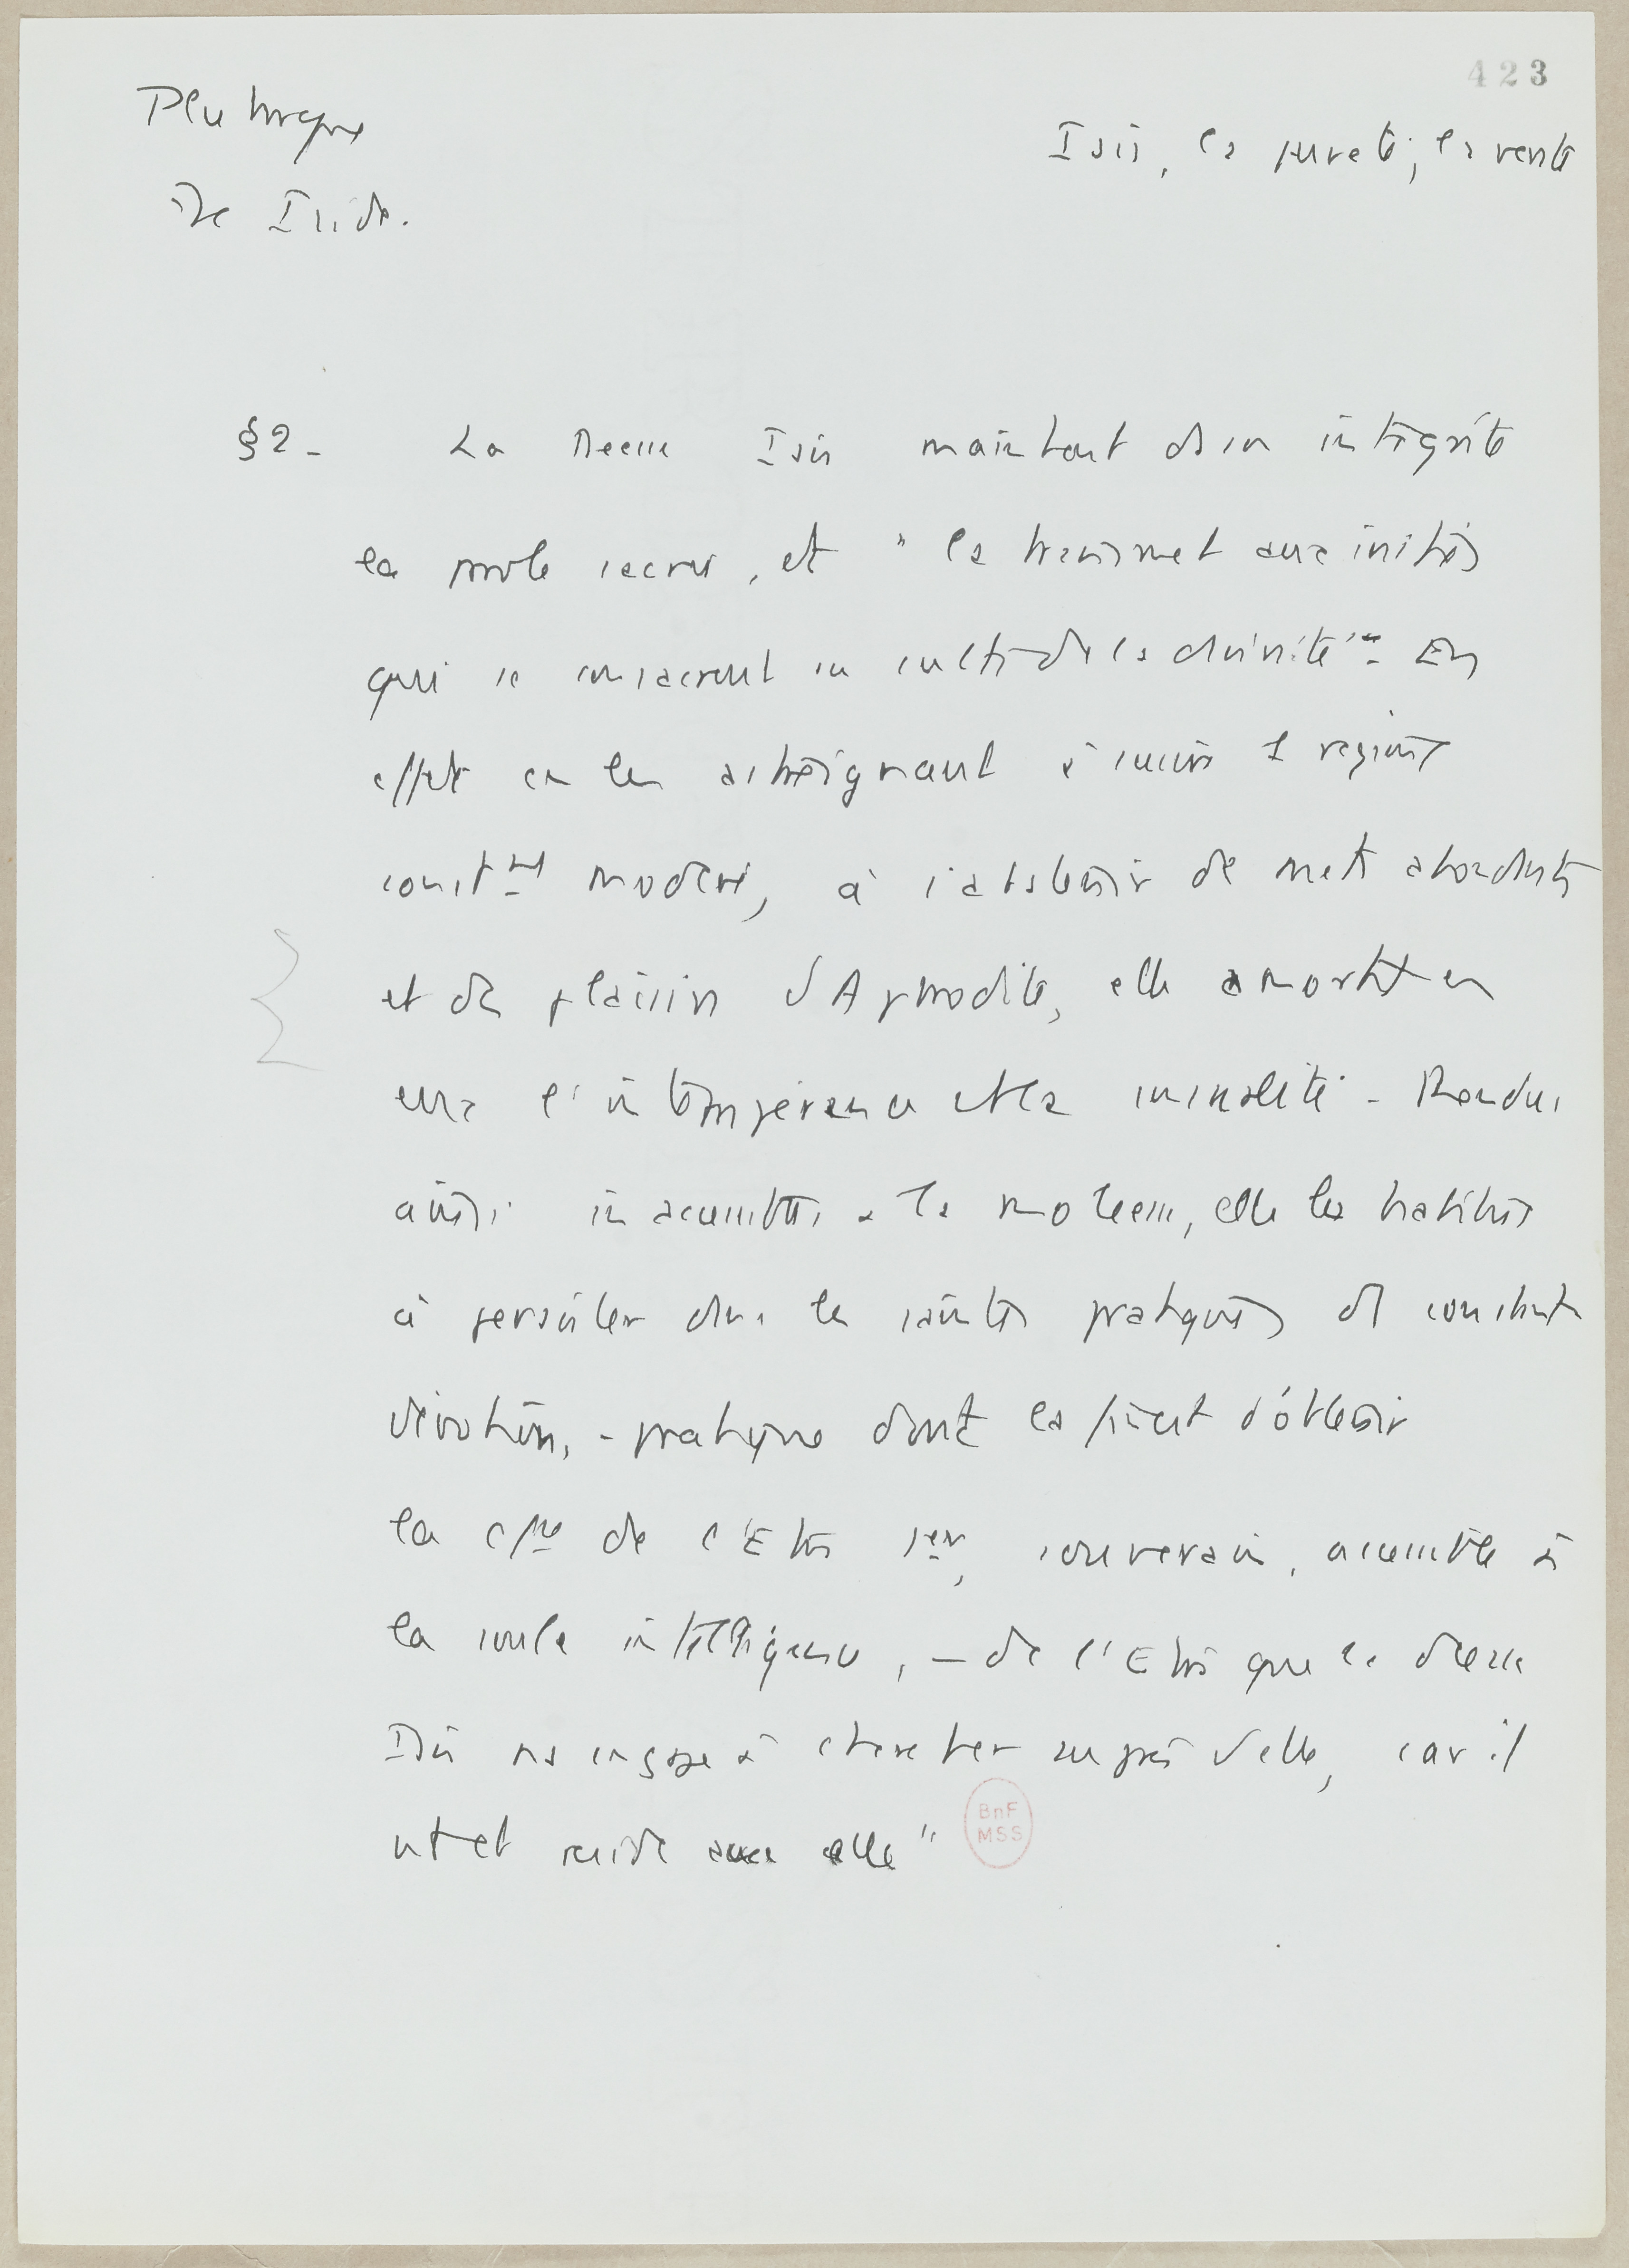 423
Plutarque
De Iside.
Isis, la pureté, la vérité
§2 - La Déesse Isis maintient ds son intégrité
la parole sacrée, et " la transmet aux initiés
qui se consacrent au culte de la divinité". En
effet en les astreignant à suivre 1 régime
const<sup>mt</sup> modéré, à s'abstenir de mets abondants
et des plaisirs d'Aphrodite, elle amortit en
eux l'intempérance et la sensualité. Rendus
ainsi inaccessibles à la mollesse, elle les habitue
à persister dans les saintes pratiques d'1 constante
dévotion, - pratiques dont la fin est d'obtenir
la c/<sup>ce</sup> de l'Etre 1er, souverain, accessible à
la seule intelligence, - de l'Etre que la déesse
Isis ns engage à chercher auprès d'elle, car il
est et réside avec elle"
BnF
MSS